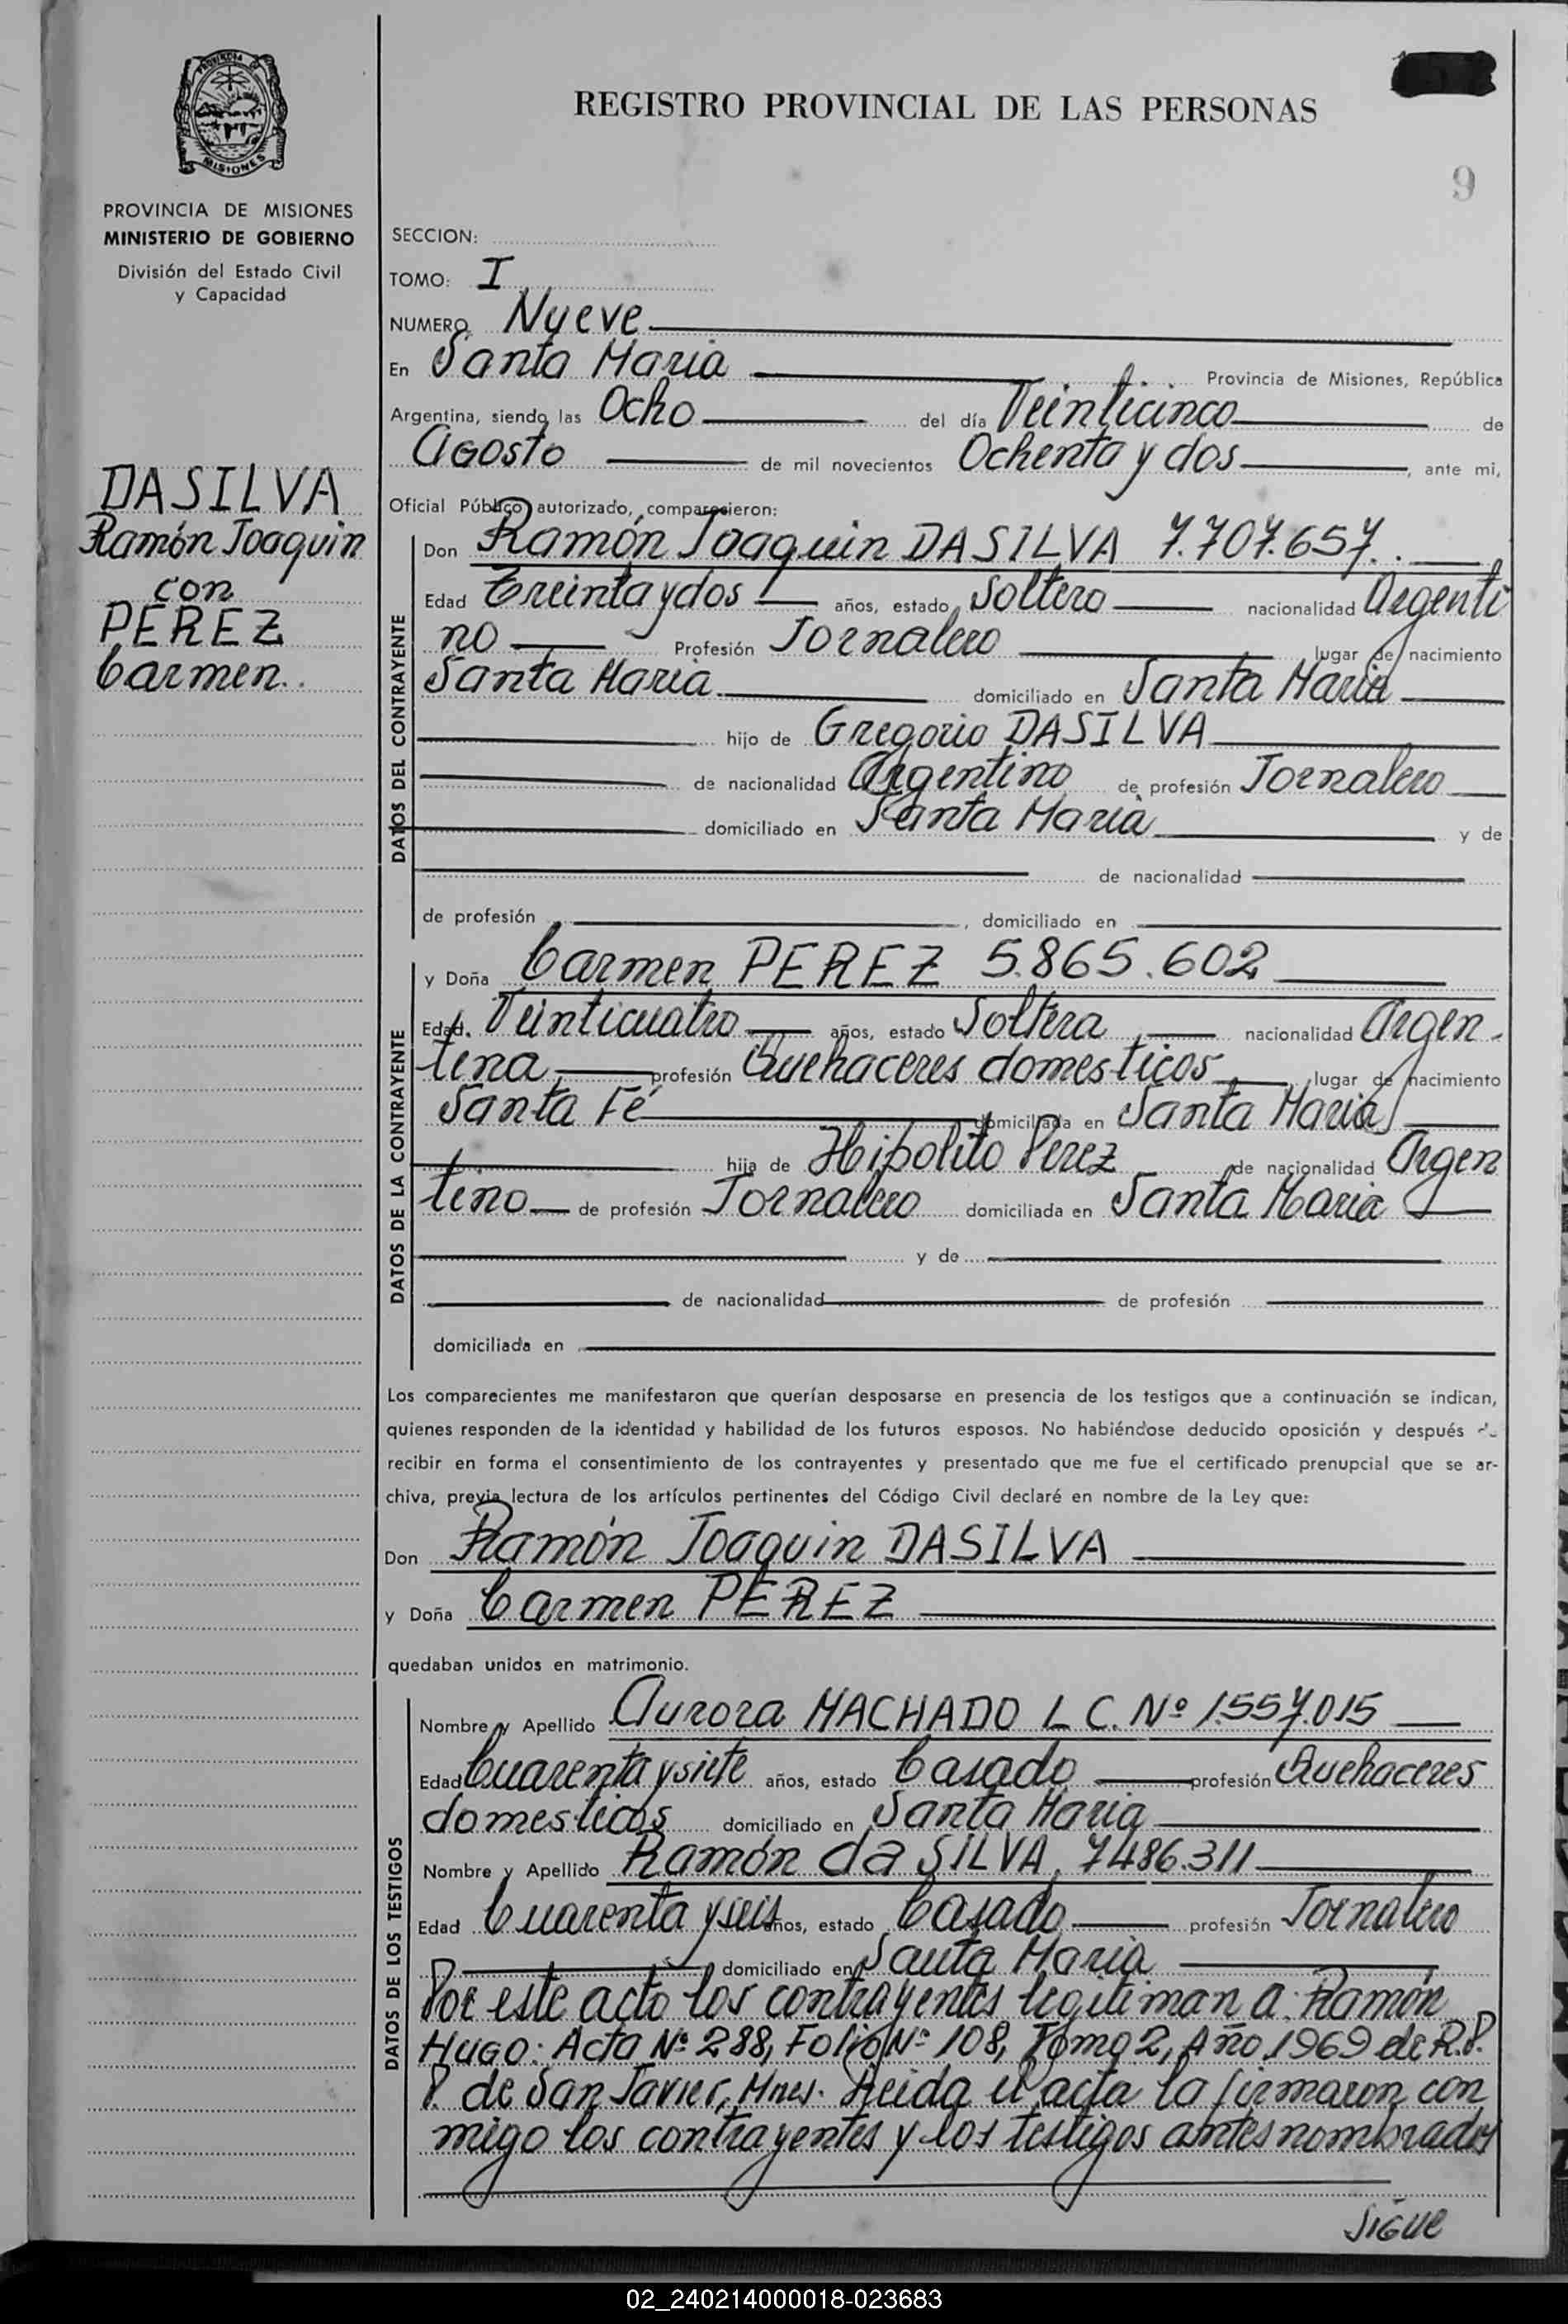 PROVINCIA DE
MISIONES
PROVINCIA DE MISIONES
MINISTERIO DE GOBIERNO
División del Estado Civil
y Capacidad
DASILVA
Ramón Joaquin
con
PEREZ
Carmen
REGISTRO PROVINCIAL DE LAS PERSONAS
9
SECCION:
TOMO: I
NUMERO Nueve
En Santa Maria Provincia de Misiones, República
Argentina, siendo las Ocho del día Veinticinco de
Agosto de mil novecientos Ochenta y dos, ante mi,
Oficial Público autorizado, comparecieron:
DATOS DEL CONTRAYENTE
Don Ramón Joaquin DASILVA 7.707.657.
Edad Treinta y dos años, estado Soltero nacionalidad Argenti
no Profesión Jornalero lugar de nacimiento
Santa Maria domiciliado en Santa Maria
hijo de Gregorio DASILVA
de nacionalidad Argentino de profesión Jornalero
domiciliado en Santa Maria y de
de nacionalidad
de profesión , domiciliado en
DATOS DE LA CONTRAYENTE
y Doña Carmen PEREZ 5.865.602
Edad. Veinticuatro años, estado Soltera nacionalidad Argen-
tina profesión Quehaceres domesticos lugar de nacimiento
Santa Fé domiciliada en Santa Maria
hija de Hipolito Perez de nacionalidad Argen
tino de profesión Jornalero domiciliada en Santa Maria
y de
de nacionalidad de profesión
domiciliada en
Los comparecientes me manifestaron que querían desposarse en presencia de los testigos que a continuación se indican,
quienes responden de la identidad y habilidad de los futuros esposos. No habiéndose deducido oposición y después de
recibir en forma el consentimiento de los contrayentes y presentado que me fue el certificado prenupcial que se ar-
chiva, previa lectura de los artículos pertinentes del Código Civil declaré en nombre de la Ley que:
Don Ramón Joaquin DASILVA
y Doña Carmen PEREZ
quedaban unidos en matrimonio.
DATOS DE LOS TESTIGOS
Nombre y Apellido Aurora MACHADO L C. Nº 1.557.015
Edad Cuarenta y siete años, estado Casado profesión Quehaceres
domesticos domiciliado en Santa Maria
Nombre y Apellido Ramón da SILVA. 7486.311
Edad Cuarenta y seis años, estado Casado profesión Jornalero
domiciliado en Santa Maria
Por este acto los contrayentes legitiman a: Ramón
Hugo: Acta Nº 288, Folio Nº 108, Tomo 2, Año 1969 de R.P.
P. de San Javier, Mnes. Leida el acta la firmaron con
migo los contrayentes y los testigos antes nombrados
SIGUE
02_240214000018-023683